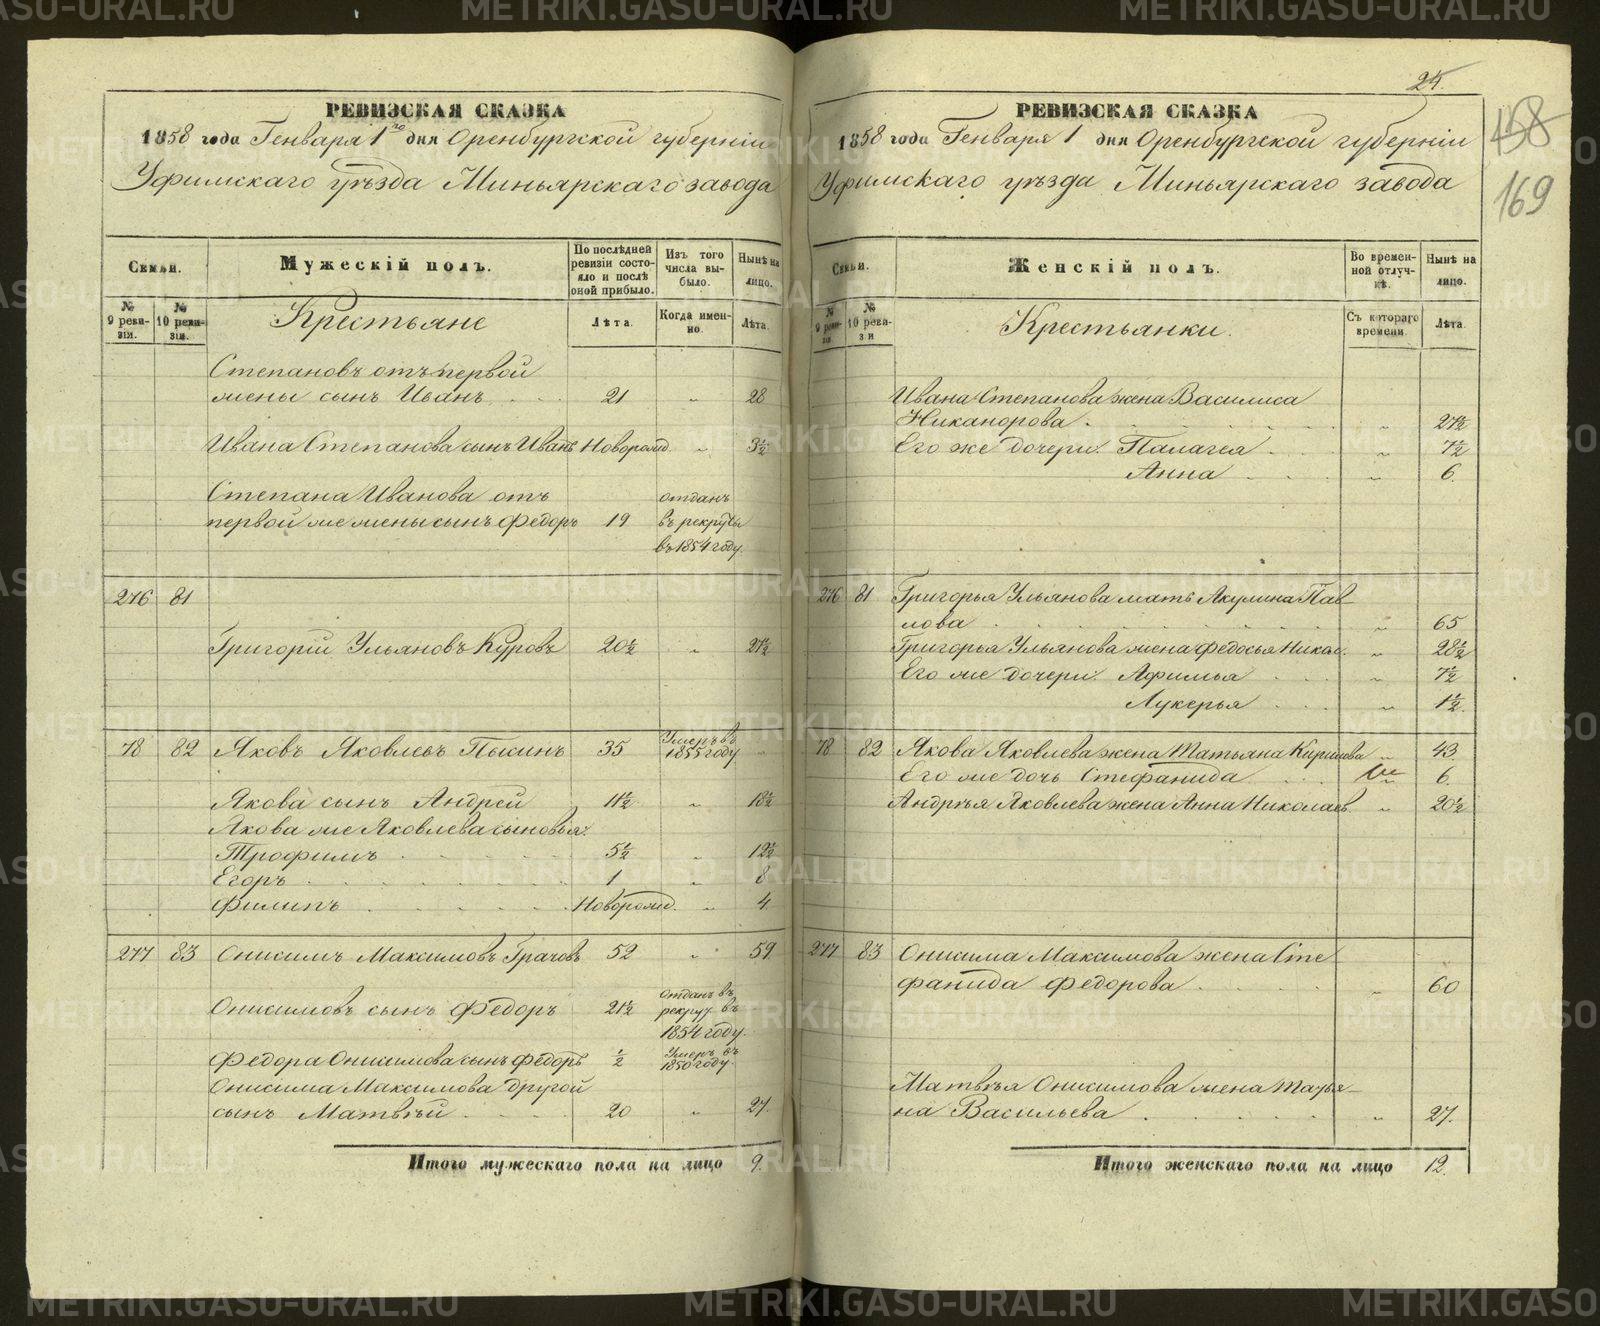 РЕВИЗСКАЯ СКАЗКА
1858 года Генваря 1го дня Оренбургской губерніи
Уфимскаго уѣзда Миньярскаго завода
Семьи.
Мужескій полъ.
По послѣдней ревизіи состояло и послѣ оной прибыло.
Изъ того числа выбыло.
Нынѣ на лицо.
№ 9 ревизіи.
№ 10 ревизіи.
Крестьяне
Лѣта.
Когда именно.
Лѣта.
Степановъ отъ первой
жены сынъ Иванъ 21 „ 28
Ивана Степанова сынъ Иванъ Новорожд. „ 3½
Степана Иванова отъ отданъ
первой же жены сынъ Федоръ 19 въ рекруты
въ 1854 году.
276 81
Григорій Ульяновъ Куровъ 20½ „ 27½
78 82 Яковъ Яковлевъ Пысинъ 35 Умеръ въ 1855 году „
Якова сынъ Андрей 11½ „ 18½
Якова же Яковлева сыновья:
Трофимъ 5½ „ 12½
Егоръ 1 „ 8
Филипъ Новорожд. „ 4
277 83 Онисимъ Максимовъ Грачовъ 52 „ 59
Онисимовъ сынъ Федоръ 21½ отданъ въ рекрут. въ 1854 году.
Федора Онисимова сынъ Федоръ ½ Умеръ въ 1850 году.
Онисима Максимова другой
сынъ Матвѣй 20 „ 27.
Итого мужескаго пола на лицо 9.
24.
158
169
РЕВИЗСКАЯ СКАЗКА
1858 года Генваря 1 дня Оренбургской губерніи
Уфимскаго уѣзда Миньярскаго завода
Семьи.
Женскій полъ.
Во временной отлучкѣ.
Нынѣ на лицо.
№ 9 ревизіи
№ 10 ревизіи
Крестьянки.
Съ котораго времени.
Лѣта.
Ивана Степанова жена Василиса
Никанорова „ 27½
Его же дочери: Палагея „ 7½
Анна „ 6.
276 81 Григорья Ульянова мать Акулина Пав-
лова „ 65
Григорья Ульянова жена Федосья Никол. „ 28½
Его же дочери: Афимья „ 7½
Лукерья „ 1½.
78 82 Якова Яковлева жена Татьяна Кирилова „ 43.
Его же дочь Стефанида „ 6.
Андрѣя Яковлева жена Анна Николаев. „ 20½
277 83 Онисима Максимова жена Сте
фанида Федорова „ 60
Матвѣя Онисимова жена Татья-
на Васильева „ 27.
Итого женскаго пола на лицо 12.
METRIKI.GASO-URAL.RU